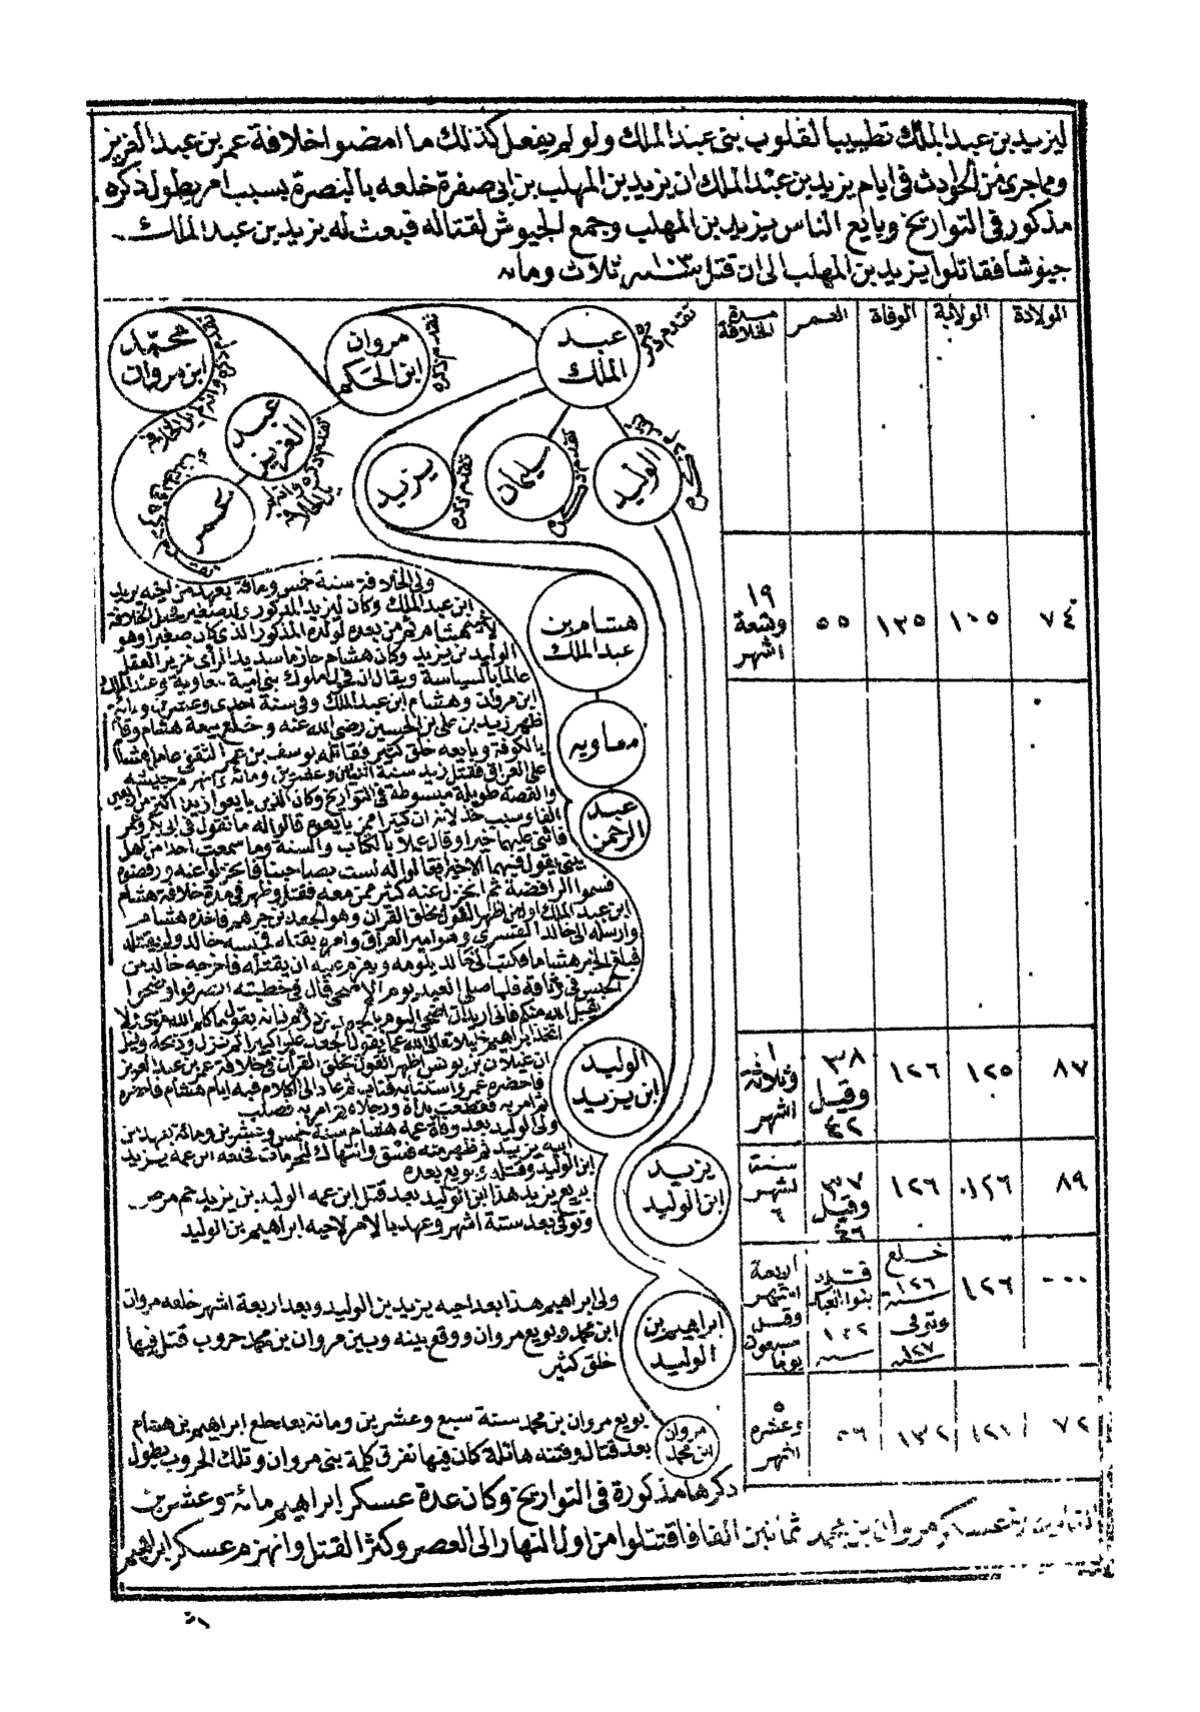 ليزيد بن عبد الملك تطييبا لقلوب بنى عبد الملك ولو لم يفعل كذلك ما امضوا خلافة عمر بن عبد العزيز
ومما جرى من الحوادث فى ايام يزيد بن عبد الملك ان يزيد بن المهلب بن ابى صفرة خلعه بالبصرة بسبب امر يطول ذكره
مذكور فى التواريخ وبايع الناس يزيد بن المهلب وجمع الجيوش لقتاله فبعث له يزيد بن عبد الملك
جيوشا فقاتلوا يزيد بن المهلب الى ان قتل سنة ١٠٣ ثلاث ومائة
الولادة
الولاية
الوفاة
العمر
مدة الخلافة
عبد الملك
تقدم ذكره
مروان ابن الحكم
تقدم ذكره
محمد ابن مروان
عبد العزيز
عمر
يزيد
تقدم ذكره
سليمان
الوليد
هشام بن عبد الملك
٧٤
١٠٥
١٢٥
٥٥
١٩ وتسعة اشهر
ولى الخلافة سنة خمس ومائة بعهد من اخيه يزيد
ابن عبد الملك وكان ليزيد المذكور ولد صغير فجعل الخلافة
لاخيه هشام ثم من بعده لولده المذكور الذى كان صغيرا وهو
الوليد بن يزيد وكان هشام حازما سديد الرأى غزير العقل
عالما بالسياسة ويقال ان فحول ملوك بنى امية معاوية وعبد الملك
ابن مروان وهشام ابن عبد الملك وفى سنة احدى وعشرين ومائة
ظهر زيد بن على بن الحسين رضى الله عنه وخلع بيعة هشام وقام
بالكوفة وبايعه خلق كثير فقاتله يوسف بن عمر الثقفى عامل هشام
على العراق فقتل زيد سنة اثنتين وعشرين ومائة وانهزم جيشه
والقصة طويلة مبسوطة فى التواريخ وكان الذين بايعوا زيدا اكثر من
الفا وسبب خذلانه ان كثيرا ممن بايعوه قالوا له ما تقول فى ابى بكر وعمر
فاثنى عليهما خيرا وقال عملا بالكتاب والسنة وما سمعت احدا من اهل
بيتى يقول فيهما الا خيرا فقالوا له لست بصاحبنا فانخزلوا عنه ورفضوه
فسموا الرافضة ثم انخزل عنه كثير ممن معه فقتل وظهر فى مدة خلافة هشام
ابن عبد الملك اول من اظهر القول بخلق القرآن وهو الجعد بن درهم فاخذه هشام
وارسله الى خالد القسرى وهو امير العراق وامره بقتله فحبسه خالد ولم يقتله
فبلغ الخبر هشاما فكتب الى خالد يلومه ويعزم عليه ان يقتله فاخرجه خالد من
الحبس فى وثاقه فلما صلى العيد يوم الاضحى قال فى خطبته انصرفوا وضحوا
تقبل الله منكم فانى اريد ان اضحى اليوم بالجعد بن درهم فانه يقول ما كلم الله موسى ولا
اتخذ ابراهيم خليلا تعالى الله عما يقول الجعد علوا كبيرا ثم نزل وذبحه وقيل
ان غيلان بن يونس اظهر القول بخلق القرآن فى خلافة عمر بن عبد العزيز
فاحضره عمر واستتابه فتاب ثم عاد الى الكلام فيه ايام هشام فاحضره
ثم امر به فقطعت يداه ورجلاه ثم امر به فصلب
معاويه
عبد الرحمن
الوليد ابن يزيد
٨٧
١٢٥
١٢٦
٣٨ وقيل ٤٢
١ وثلاثة اشهر
ولى الوليد بعد وفاة عمه هشام سنة خمس وعشرين ومائة بعهد من
ابيه يزيد ثم ظهر منه فسق وانتهاك للحرمات فخلعه ابن عمه يزيد
ابن الوليد وقتله وبويع بعده
يزيد ابن الوليد
٨٩
١٢٦
١٢٦
٣٧ وقيل ٤٦
ستة اشهر ٦
بويع يزيد هذا ابن الوليد بعد قتل ابن عمه الوليد بن يزيد ثم مرض
وتوفى بعد ستة اشهر وعهد بالامر لاخيه ابراهيم بن الوليد
ابراهيم بن الوليد
٠٠٠
١٢٦
خلع سنة ١٢٦ وتوفى سنة ١٢٧
قتله بنو العباس سنة ١٣٢
اربعة اشهر وقيل سبعون يوما
ولى ابراهيم هذا بعد اخيه يزيد بن الوليد وبعد اربعة اشهر خلعه مروان
ابن محمد وبويع مروان ووقع بينه وبين مروان بن محمد حروب قتل فيها
خلق كثير
مروان ابن محمد
٧٢
١٢١
١٣٢
٥٦
٥ وعشرة اشهر
بويع مروان بن محمد سنة سبع وعشرين ومائة بعد خلع ابراهيم بن هشام
بعد قتال وفتنة هائلة كان فيها تفرق كلمة بنى مروان وتلك الحروب يطول
ذكرها مذكورة فى التواريخ وكان عدة عسكر ابراهيم مائة وعشرين
الفا وعدة عسكر مروان بن محمد ثمانين الفا فاقتتلوا من اول النهار الى العصر وكثر القتل وانهزم عسكر ابراهيم